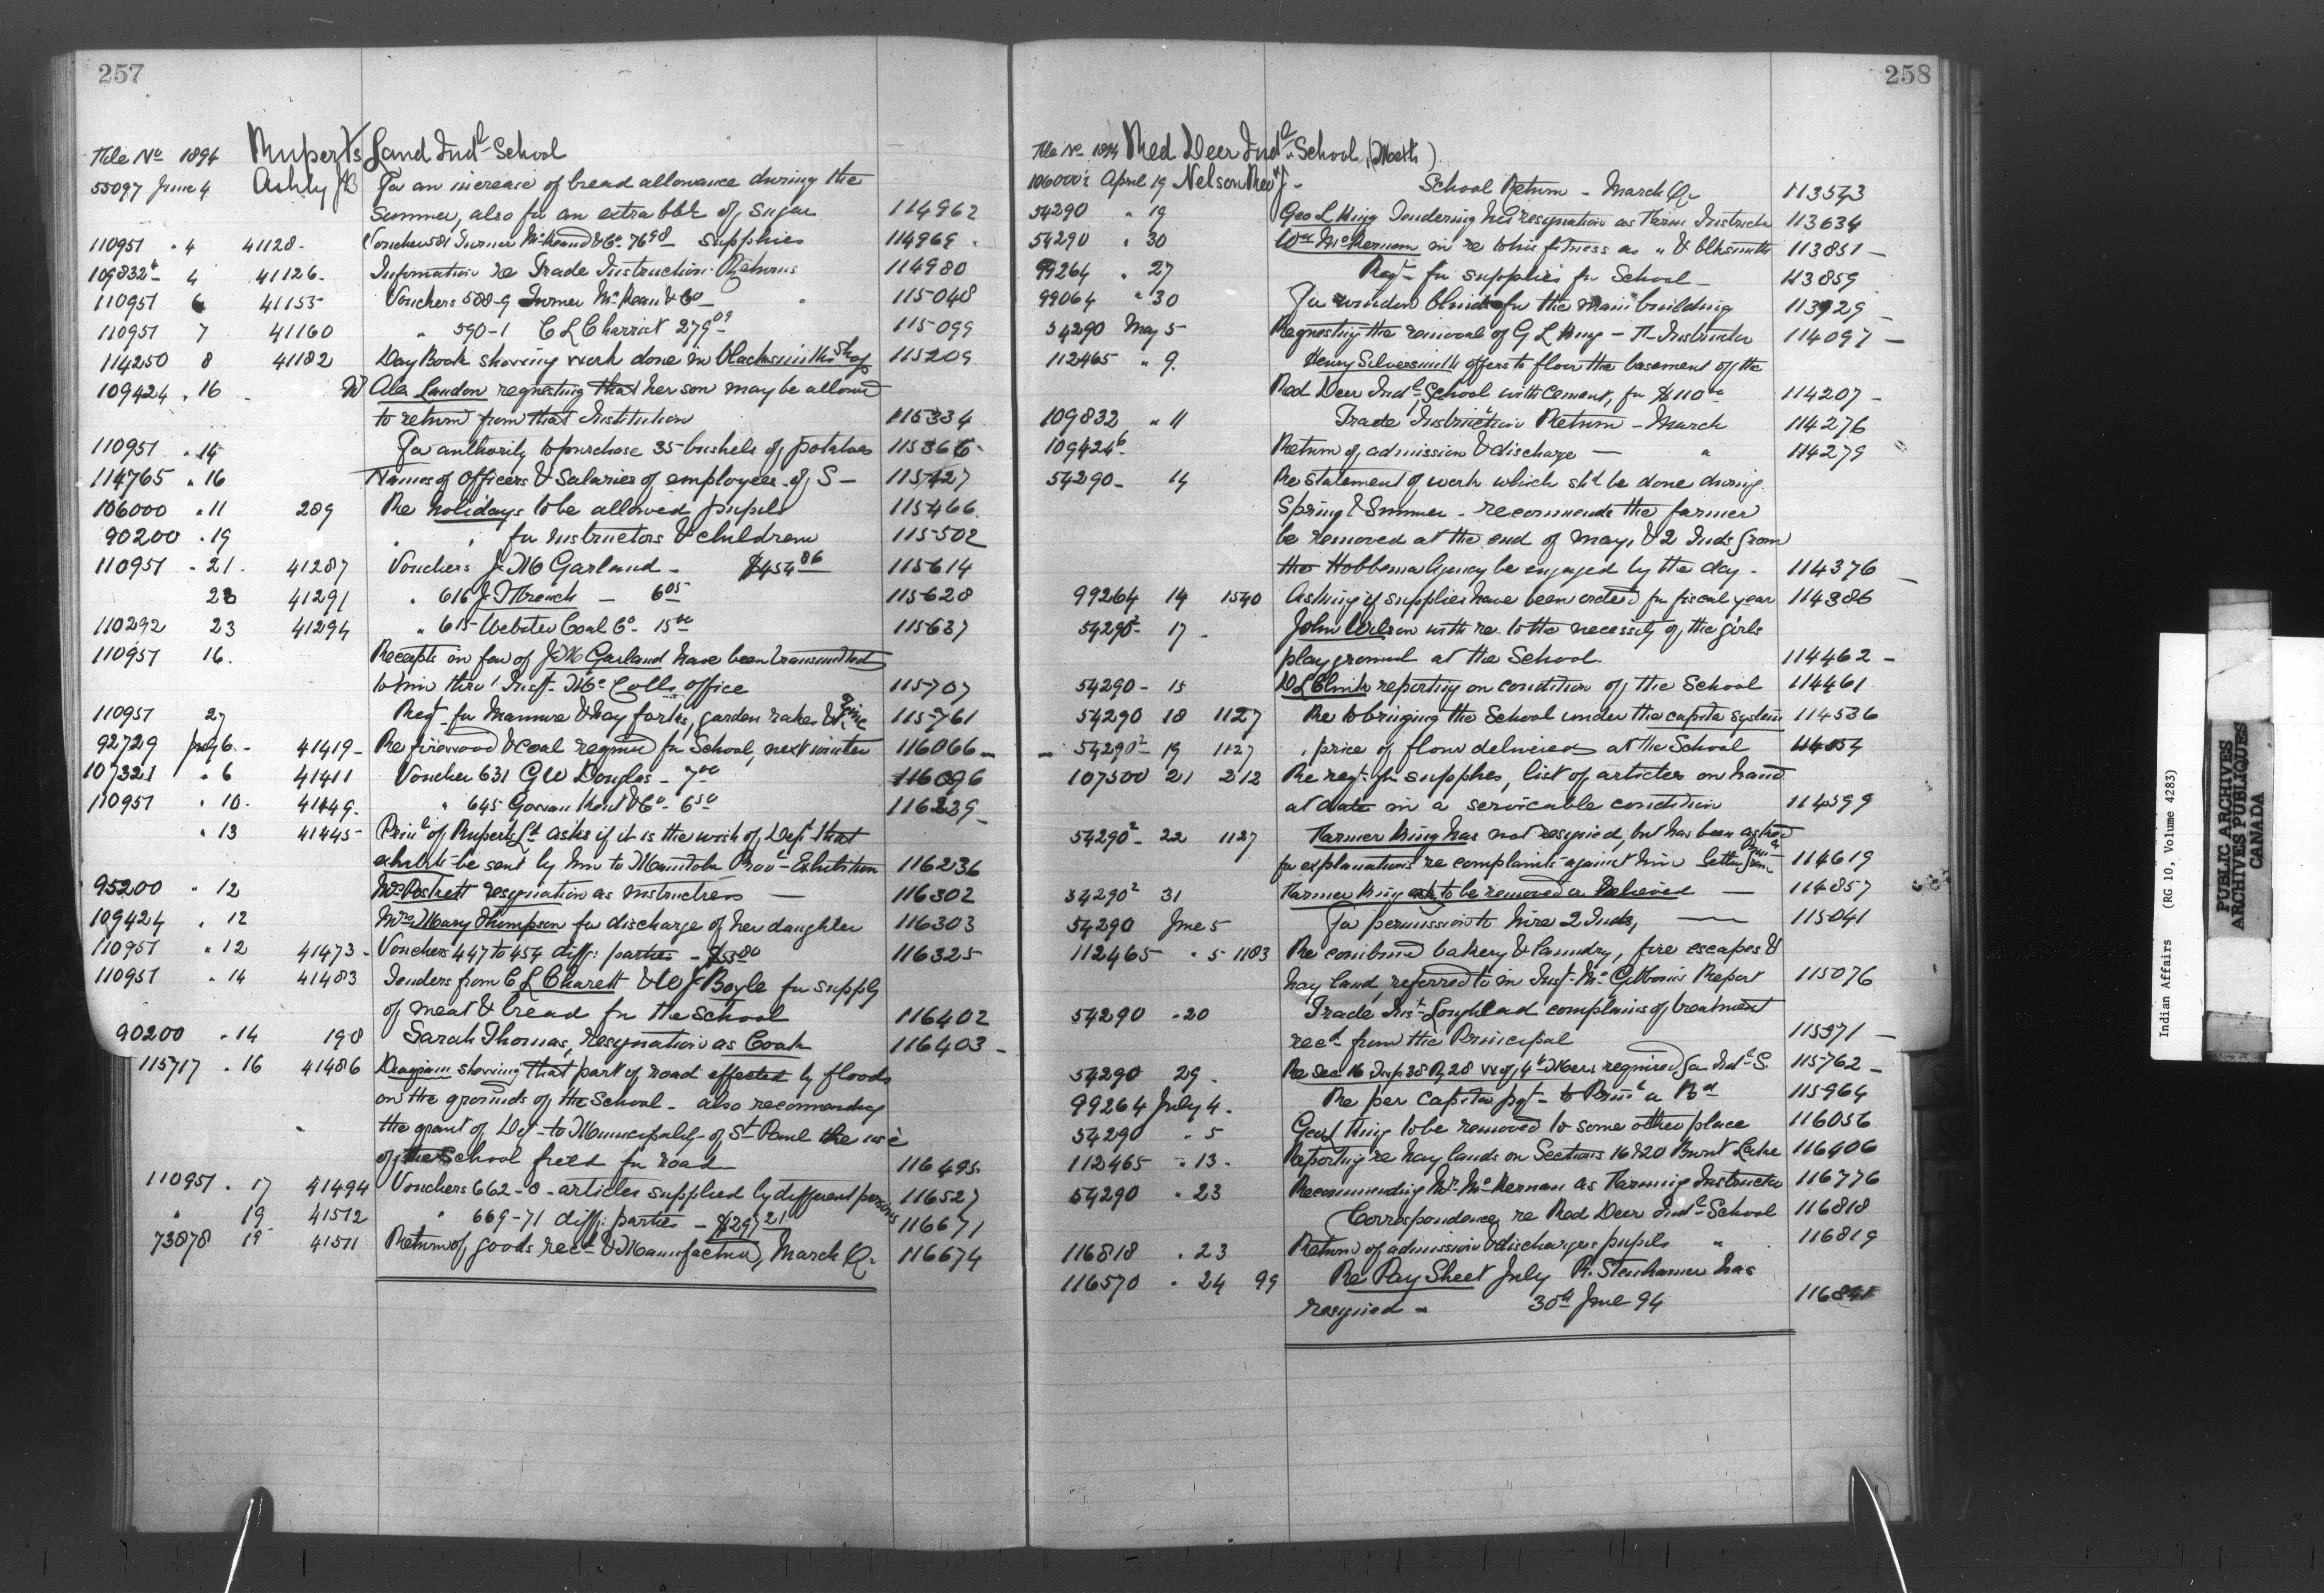 257
File No 1894 Ruperts Land Indl School
55097 June 4 Ashby JB For an increase of bread allowance during the
summer, also for an extra bbl of sugar 114962
110951 " 4 41128 Voucher 581 Turner McKeand & Co 76 98 supplies 114969
109832 4 41126 Information re Trade Instruction Returns 114980
110951 6 41155 Vouchers 588-9 Turner McKean & Co 115048
110951 7 41160 " 590-1 C L Charriet 279 09 115099
114250 8 41182 Day Book showing work done in blacksmiths Shop 115209
109424 " 16 Landon requesting that her son may be allowed
to return from that Institution 115334
110951 " 15 For authority to purchase 35 bushels of potatoes 115366
114765 " 16 Names of Officers & Salaries of employees of S 115427
106000 " 11 289 Re holidays to be allowed pupils 115466
90200 " 19 " " for instructors & children 115502
110951 " 21 41287 Vouchers J M Garland - $454 86 115614
22 41291 " 616 J French - 6 05 115628
110292 23 41294 " 615 Webster Coal Co 15 00 115637
110951 16 Receipts in fav of J M Garland have been transmitted
to him thro' Insp McColls office 115707
110951 27 Reqt for Manure & hay forks, garden rakes & Twine 115761
92729 July 6 - 41419 - Re firewood & coal required for School, next winter 116066
107321 " 6 41411 Voucher 631 GW Douglas - 7 00 116096
110951 " 10 41449 " 645 Gowan Kent & Co 6 50 116229
" 13 41445 Princl of Ruperts Ld asks if it is the wish of Dept that
exhibits be sent by him to Manitoba Provl Exhibition 116236
95200 " 12 resignation as instructress 116302
109424 " 12 Mrs Mary Thompson for discharge of her daughter 116303
110951 " 12 41473 - Vouchers 447 to 454 diff: parties - 116325
110951 " 14 41483 Tenders from C L Charett & W J Boyle for supply
of meat & bread for the School 116402
90200 " 14 198 Sarah Thomas, resignation as Cook 116403
115717 " 16 41486 Diagram showing that part of road effected by floods
on the grounds of the School - also recommending
the grant of Dept to Municipality of St Paul the use
of the School field for road 116495
110951 " 17 41494 Vouchers 662-8 - articles supplied by different persons 116527
" 19 41512 " 669-71 diff: parties - $297 21 116671
73878 19 41511 Return of goods recd & Manufactured, March Qr 116674
258
File No 1894 Red Deer Indl School, (Meth)
106000 April 19 Nelson Rev J - School Return - March Qr 113543
54290 " 19 Geo L King Tendering his resignation as Farm Instructr 113634
54290 " 30 Wm McKernan in re to his fitness as " & blksmith 113851
99264 " 27 Reqt for supplies for School - 113859
99064 " 30 For window blinds for the Main building 113929
54290 May 5 Requesting the removal of G L King - F Instructor 114097
112465 " 9 Henry Silversmith offers to floor the basement of the
Red Deer Indl School with cement, for $110 00 114207
109832 " 11 Trade Instruction Return - March 114276
109424 6 Return of admission & discharge - " 114279
54290 - 14 Re Statement of work which shd be done during
Spring & Summer - recommends the farmer
be removed at the end of May, & 2 Inds from
the Hobbema Agency be engaged by the day - 114376
99264 14 1540 Asking if supplies have been ordered for fiscal year 114386
54290 2 17 - John Wilson with re to the necessity of the girls
playground at the School 114462
54290 - 15 D L Clink reporting on condition of the School 114461
54290 18 1127 Re to bringing the School under the capita system 114536
54290 2 19 1127 " price of flour delivered at the School
107500 21 212 Re reqt for supplies, list of articles on hand
at date in a servicable condition 114599
54290 2 22 1127 Farmer King has not resigned, but has been asked
for explanations re complaints against him 114619
54290 2 31 Farmer King to be removed or Relieved 114857
54290 June 5 For permission to hire 2 Inds, 115041
112465 " 5 1183 Re combined bakery & laundry, fire escapes &
hay land, referred to in Insp McGibbons Report 115076
54290 - 20 Trade Inst Loughead complains of treatment
recd from the Principal 115371
54290 29 - Re Sec 16 Twp 38 R 28 W of 4th Mer required for Indl S. 115762
99264 July 4 - Re per capita pyt to 115964
54290 " 5 Geo L King to be removed to some other place 116056
112465 " 13 - Reporting re hay lands on Sections 16 & 20 Burnt Lake 116406
54290 " 23 Recommending Mr McKernan as Farming Instructor 116776
Correspondence re Red Deer Indl School 116818
116818 " 23 Return of admission & discharge pupils " 116819
116570 " 24 99 Re Pay Sheet July R. Stenhamer has
resigned - 30th June 94
Indian Affairs (RG 10, Volume 4283)
PUBLIC ARCHIVES
ARCHIVES PUBLIQUES
CANADA